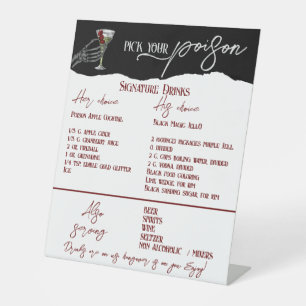 PICK YOUR poison
SIGNATURE DRINKS
Her choice
POISON APPLE COCKTAIL
1/3 C. APPLE CIDER
1/3 C. CRANBERRY JUICE
2 OZ FIREBALL
1 OZ. GRENADINE
1/4 TSP. EDIBLE GOLD GLITTER
ICE
His choice
BLACK MAGIC JELLO
PACKAGES
DIVIDED
2 C. CUPS BOILING WATER, DIVIDED
2 C. VODKA, DIVIDED
BLACK FOOD COLORING
LIME WEDGE FOR RIM
BLACK SANDING SUGAR FOR RIM
Also
Serving
BEER
SPIRITS
WINE
SELTZER
NON ALCOHOLIC / MIXERS
Drinks are on us, hangover is on you. Enjoy!